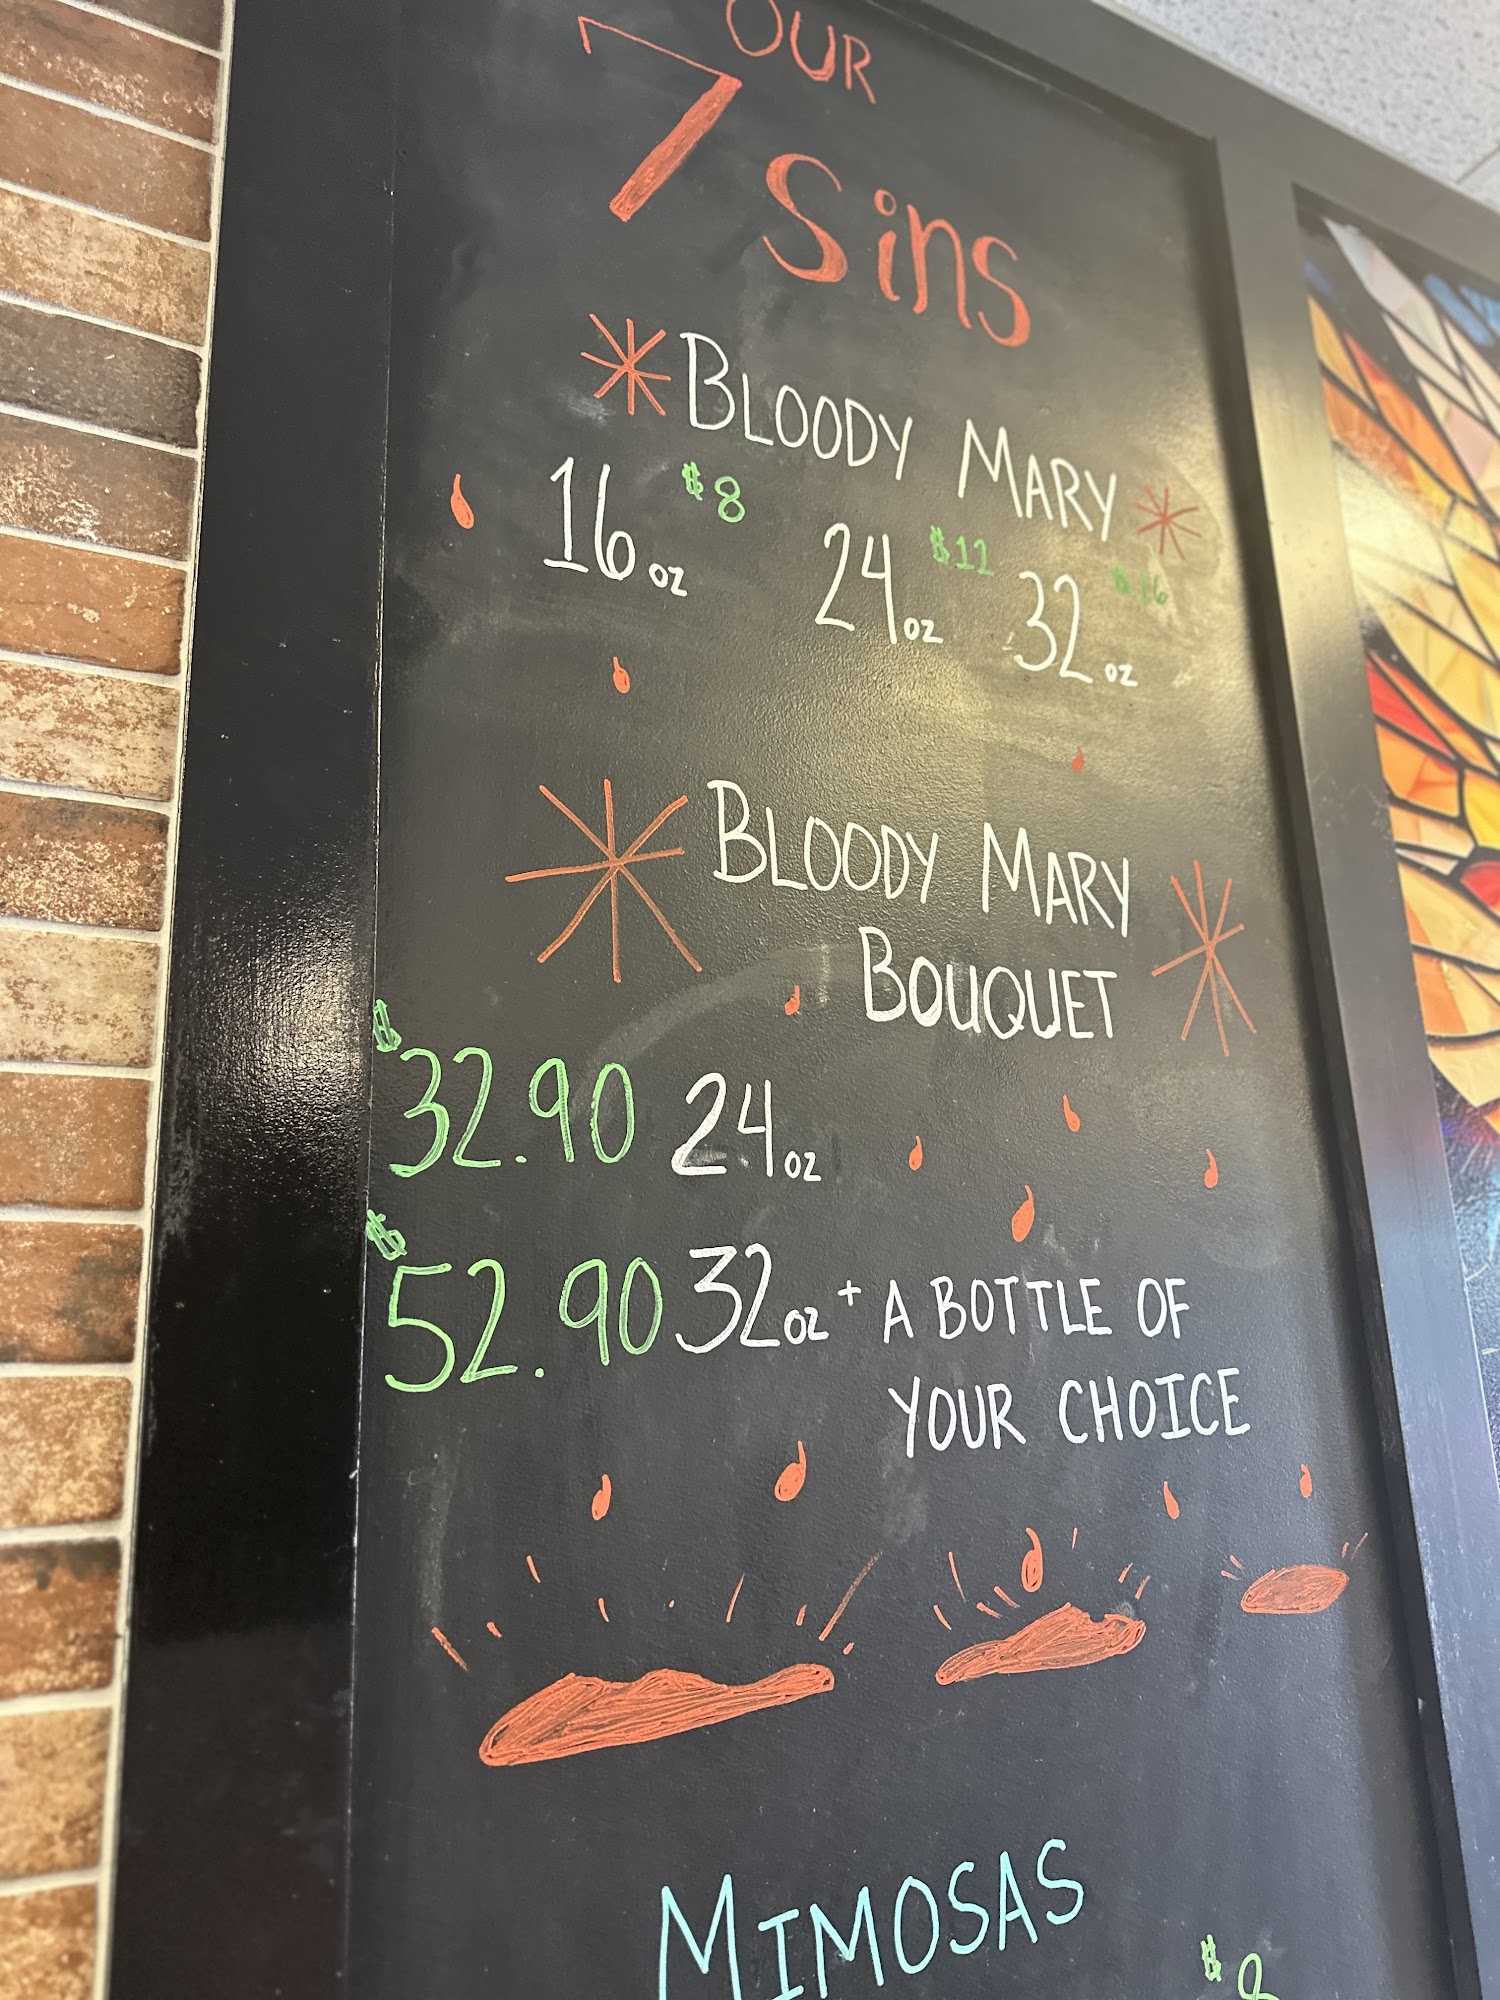 OUR
7 Sins
BLOODY MARY
16 oz $8 24 oz $12 32 oz $16
BLOODY MARY
BOUQUET
$32.90 24 oz
$52.90 32 oz + A BOTTLE OF
YOUR CHOICE
MIMOSAS
$8